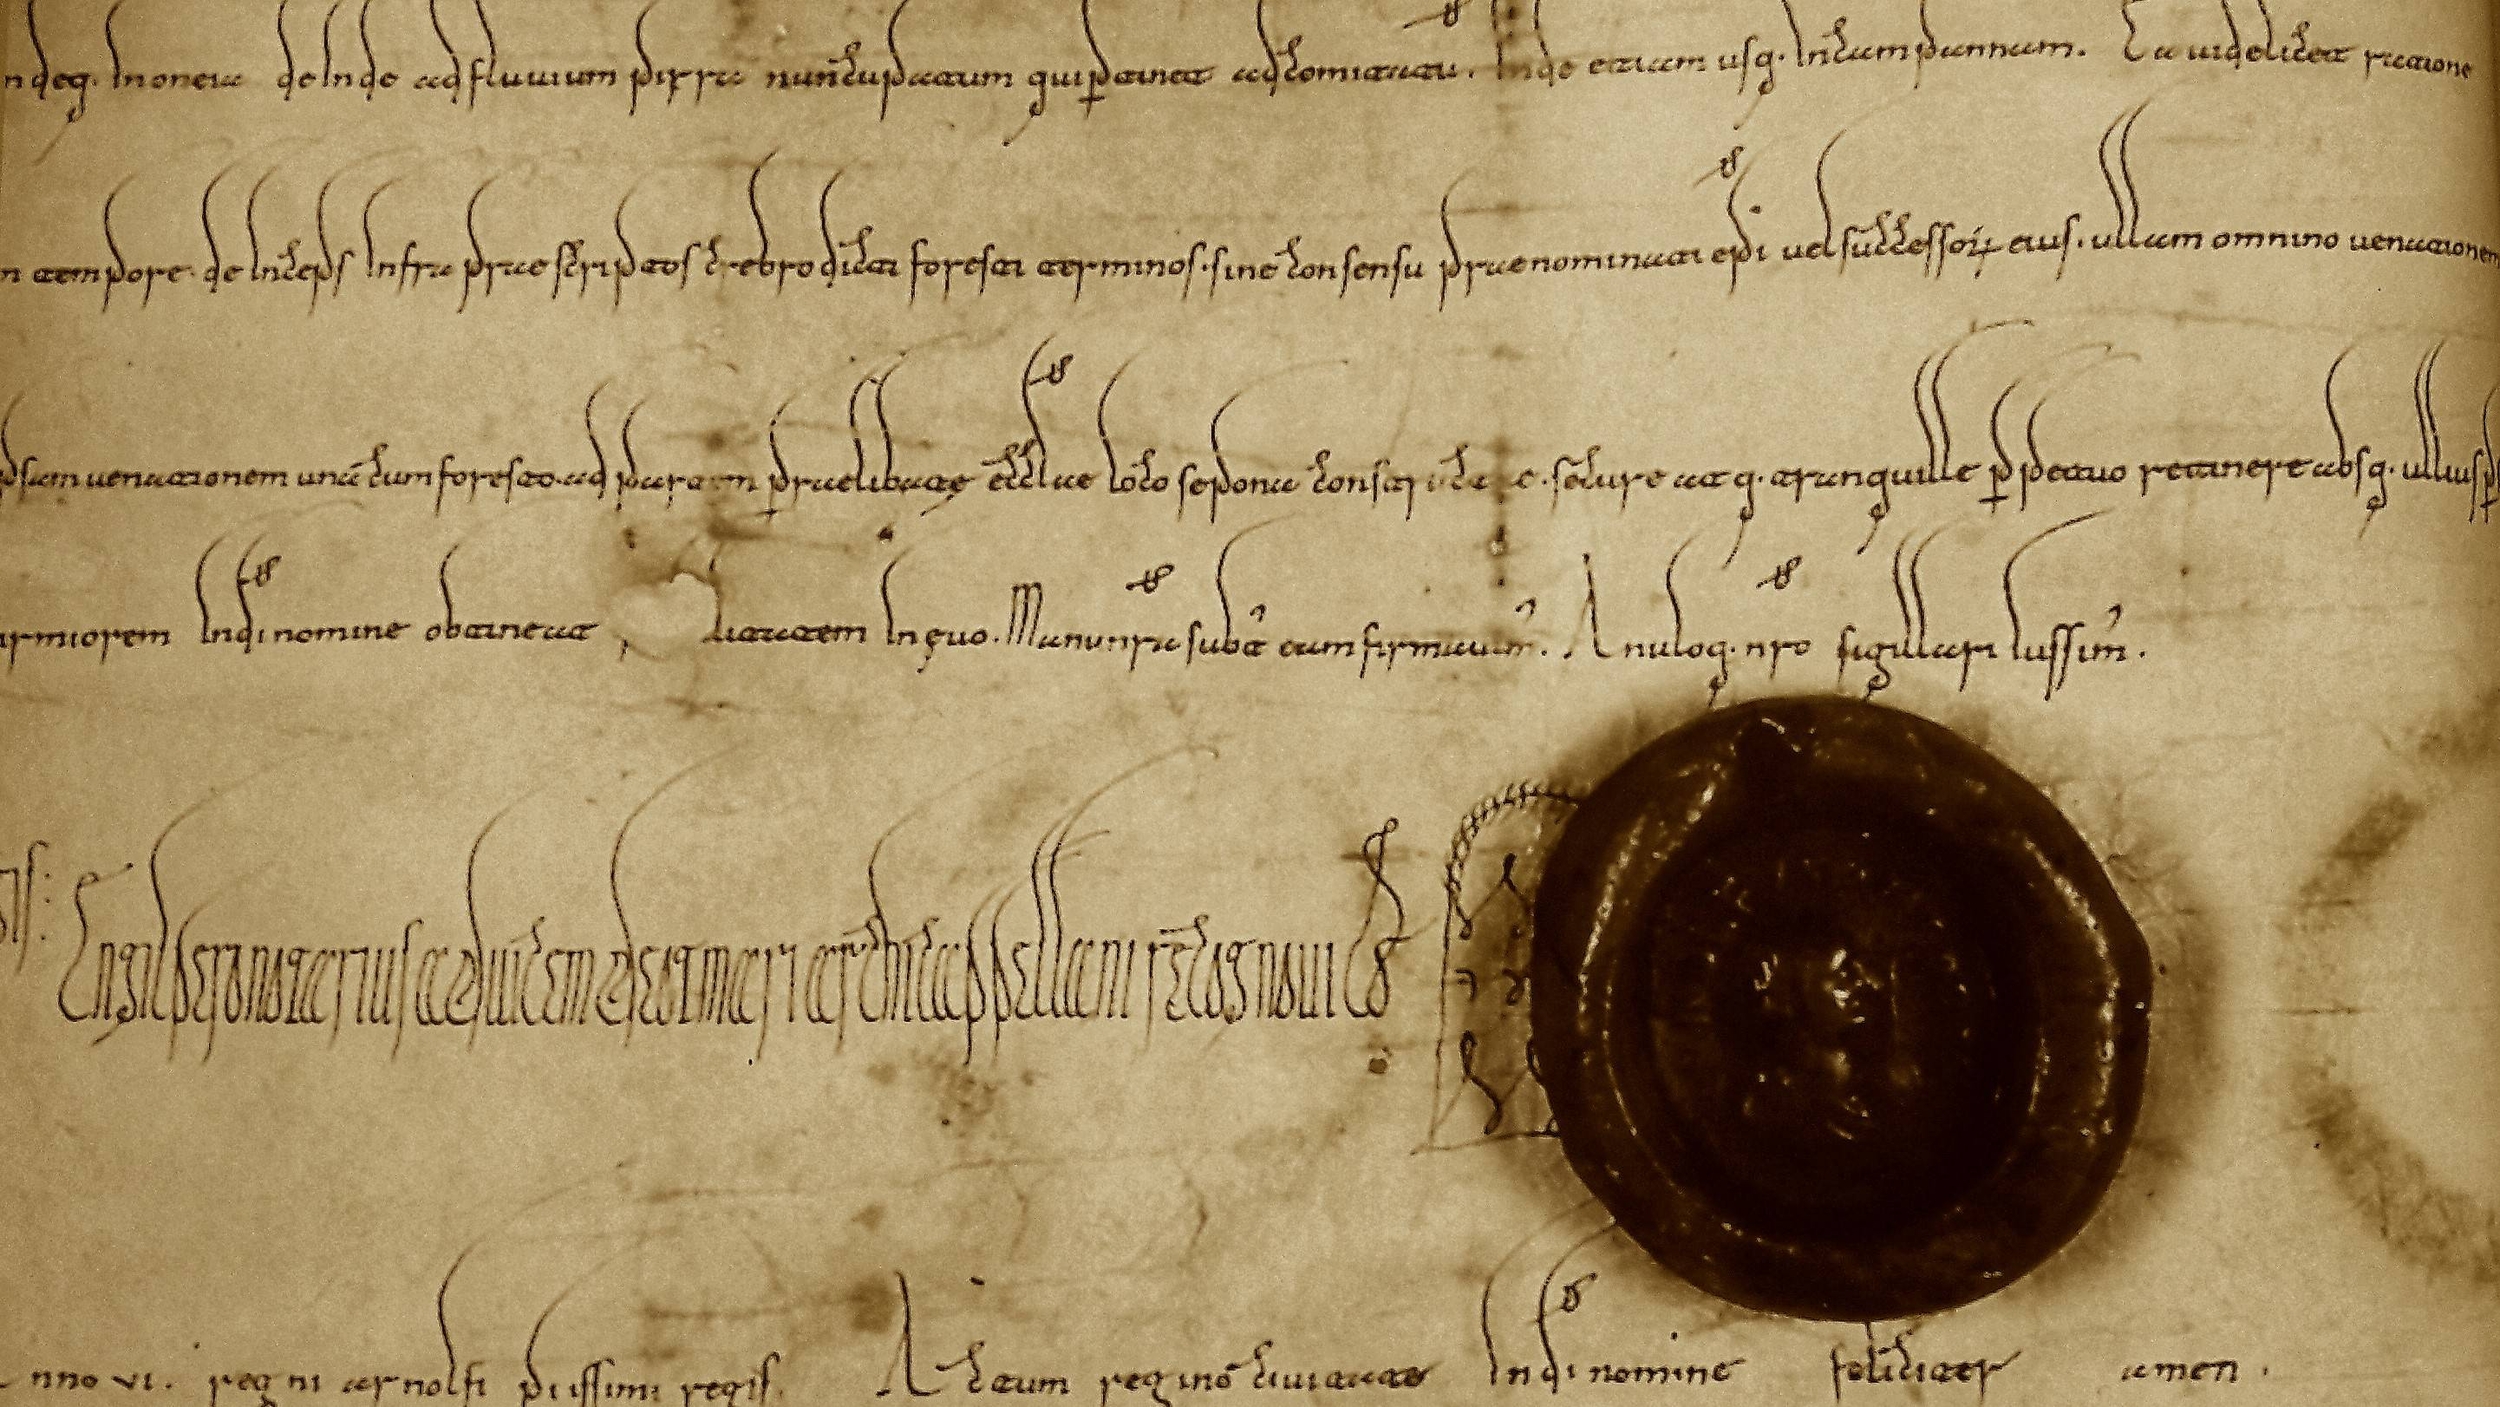 ndeq. Inoneia deInde ad fluuium pirra nuncupatum qui ptinet ad comitatu. Inde etiam usq. Incampannum. Ea uidelicet ratione
n tempore. deInceps Infra praescriptos crebrodicti foresti terminos. sine consensu praenominati epi uel successorũ eius. ullam omnino uenationem
psam uenationem una cum foresto. ad partem praelibatae eccłae loco seponi concti secure atq. tranquille ppetuo retinere absq. ullius
irmiorem Indi nomine obtineat Inęuo. Manu nra subt eam firmauim̃. Anuloq. nro sigillari Iussim̃.
Engilpero notarius aduicem deotmari archicappellani recognoui et
nno vi. regni arnolfi piissimi regis. Actum reginõ ciuitate Indi nomine feliciter amen.